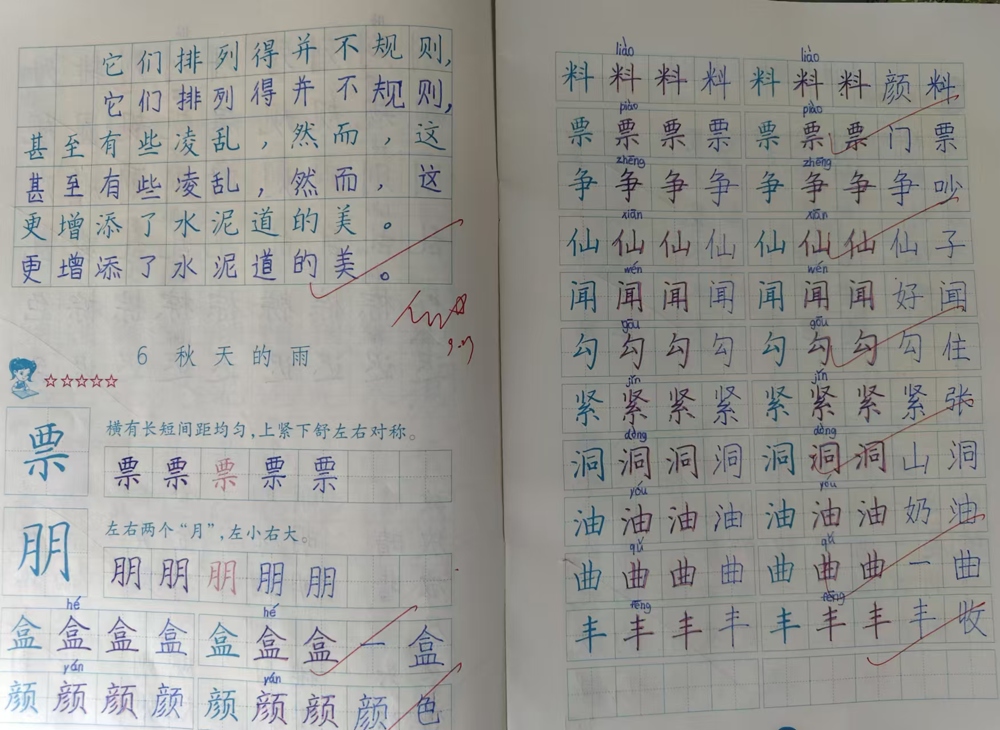 它们排列得并不规则,
它们排列得并不规则,
甚至有些凌乱,然而,这
甚至有些凌乱,然而,这
更增添了水泥道的美。
更增添了水泥道的美。
9.27
6 秋天的雨
票 横有长短间距均匀,上紧下舒左右对称。
票票票票票
朋 左右两个“月”,左小右大。
朋朋朋朋朋
hé hé
盒盒盒盒盒盒盒一盒
yán yán
颜颜颜颜颜颜颜颜色
liào liào
料料料料料料料颜料
piào piào
票票票票票票票门票
zhēng zhēng
争争争争争争争争吵
xiān xiān
仙仙仙仙仙仙仙仙子
wén wén
闻闻闻闻闻闻闻好闻
gōu gōu
勾勾勾勾勾勾勾勾住
jǐn jǐn
紧紧紧紧紧紧紧紧张
dòng dòng
洞洞洞洞洞洞洞山洞
yóu yóu
油油油油油油油奶油
qǔ qǔ
曲曲曲曲曲曲曲一曲
fēng fēng
丰丰丰丰丰丰丰丰收